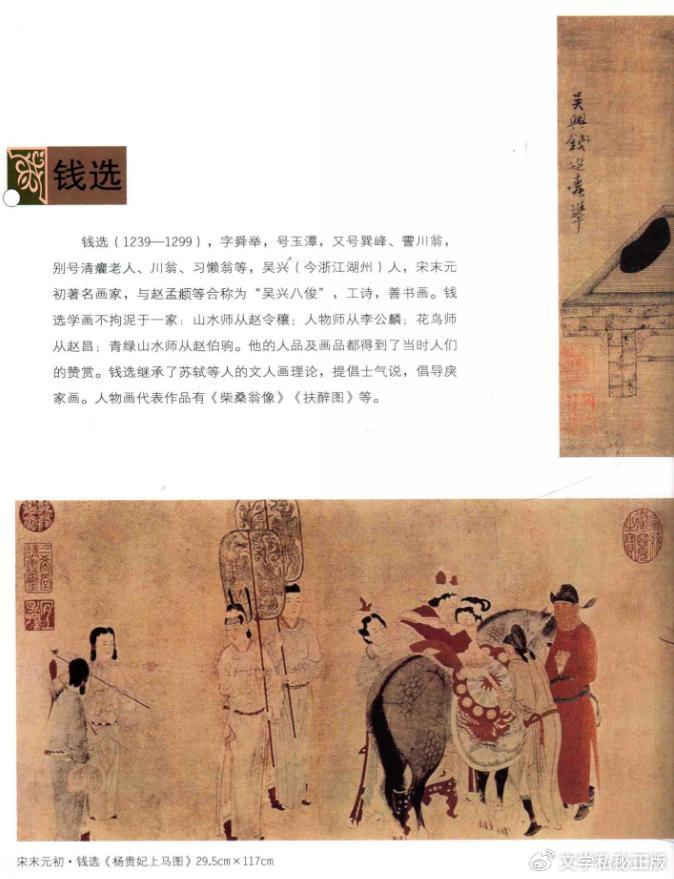 钱选
钱选（1239—1299），字舜举，号玉潭，又号巽峰、霅川翁，
别号清癯老人、川翁、习懒翁等，吴兴（今浙江湖州）人，宋末元
初著名画家，与赵孟頫等合称为“吴兴八俊”，工诗，善书画。钱
选学画不拘泥于一家：山水师从赵令穰；人物师从李公麟；花鸟师
从赵昌；青绿山水师从赵伯驹。他的人品及画品都得到了当时人们
的赞赏。钱选继承了苏轼等人的文人画理论，提倡士气说，倡导戾
家画。人物画代表作品有《柴桑翁像》《扶醉图》等。
吴興錢选舜舉
宋末元初·钱选《杨贵妃上马图》29.5cm×117cm
文学私秘正版